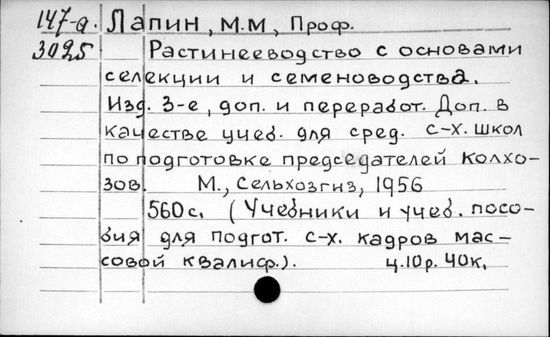 147-а. Лапин, М.М, Проф.
3025 Растинееводство с основами
селекции и семеноводства.
Изд. 3-е, доп. и переработ. Доп. в
качестве учеб. для сред. с-х. школ
по подготовке председателей колхо-
зов. М., Сельхозгиз, 1956
560 с. (Учебники и учеб. посо-
бия для подгот. с-х. кадров мас-
совой квалиф.). ц.10р. 40к.